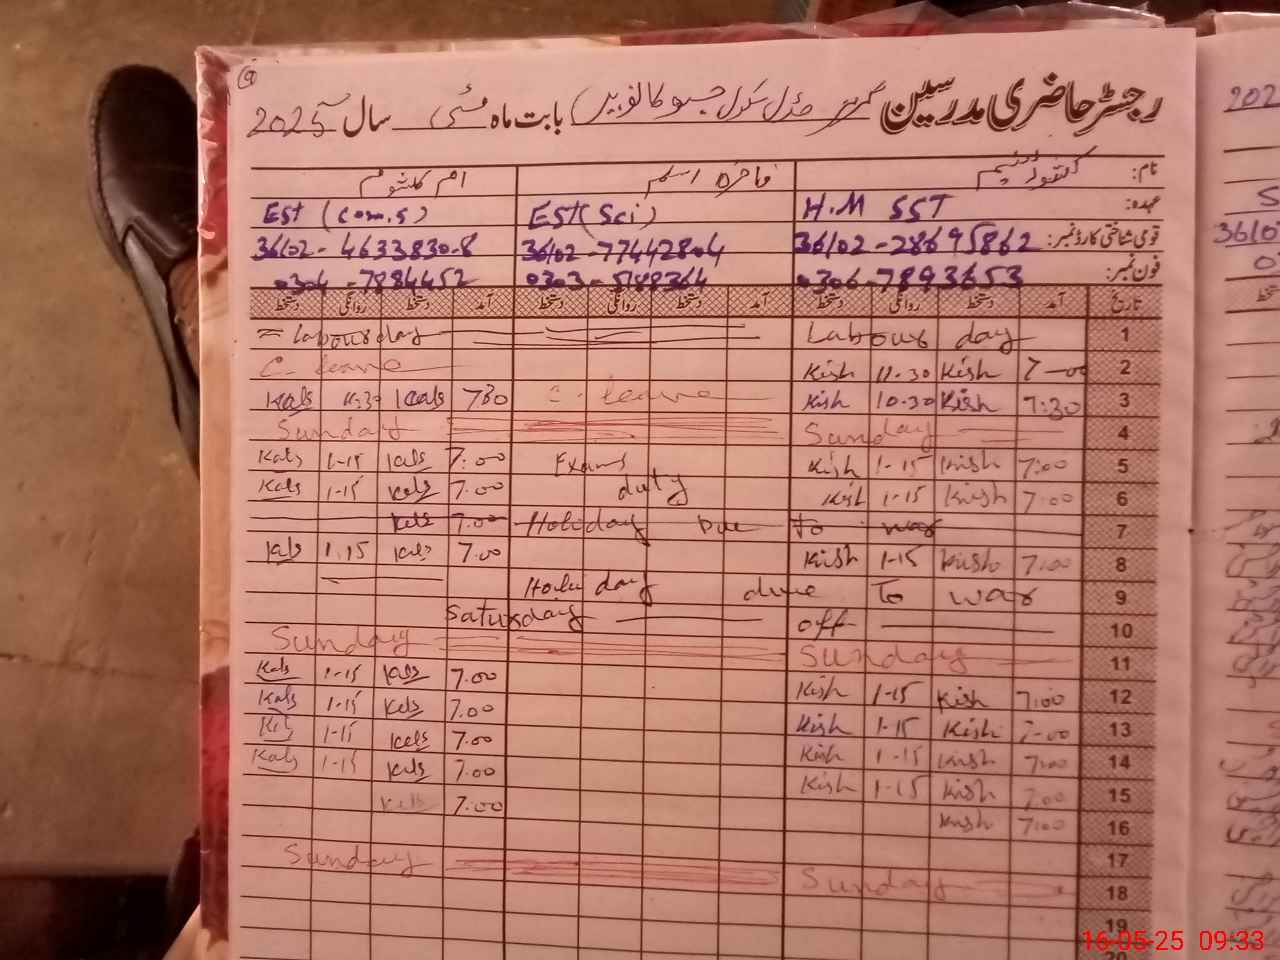 رجسٹر حاضری مدرسین گورنمنٹ مڈل سکول بابت ماہ مئی سال 2025
نام: کشور نسیم فاخرہ اسلم ام کلثوم
عہدہ: H.M SST EST (Sci) EST (Com.s)
قومی شناختی کارڈ نمبر: 36102-28695862 36102-77442804 36102-4633830-8
فون نمبر: 0306-7893653 0303-5188364 0304-7884452
تاریخ آمد دستخط روانگی دستخط آمد دستخط روانگی دستخط آمد دستخط روانگی دستخط
= Labour day Labour day 1
C. leave Kish 11.30 Kish 7-00 2
Kals 11.30 Kals 7:30 C. leave Kish 10-30 Kish 7:30 3
Sunday Sunday 4
Kals 1-15 Kals 7:00 Exams Kish 1-15 Kish 7:00 5
Kals 1-15 Kals 7.00 duty Kish 1-15 Kish 7:00 6
Kals 7.00 Holiday Due to war 7
Kals 1.15 Kals 7.00 Kish 1-15 Kish 7:00 8
Holiday due To war 9
Saturday off 10
Sunday Sunday 11
Kals 1-15 Kals 7.00 Kish 1-15 Kish 7:00 12
Kals 1-15 Kals 7.00 Kish 1-15 Kish 7-00 13
Kals 1-15 Kals 7.00 Kish 1-15 Kish 7:00 14
Kals 1-15 Kals 7.00 Kish 1-15 Kish 7:00 15
Kals 7:00 Kish 7:00 16
17
Sunday Sunday 18
19
20
16-05-25 09:33